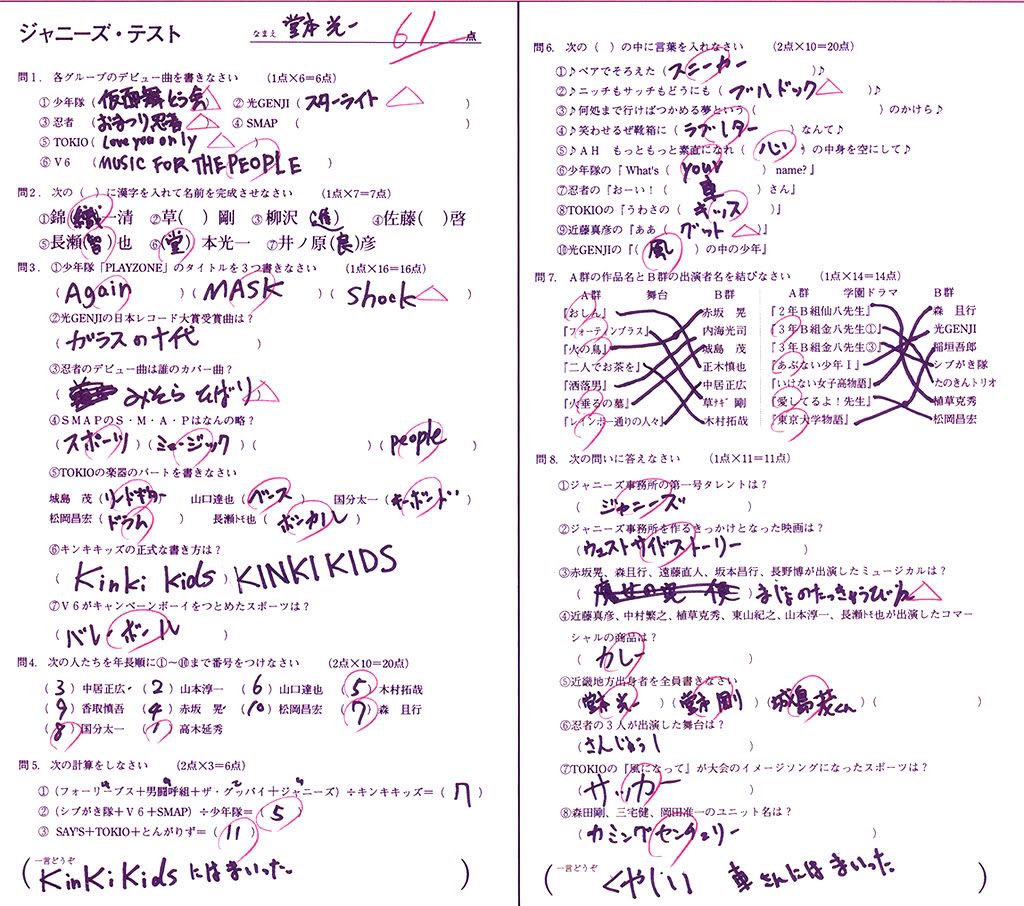 ジャニーズ・テスト
なまえ 堂本光一 61点
問1. 各グループのデビュー曲を書きなさい (1点×6=6点)
①少年隊(仮面舞とう会) ②光GENJI(スターライト)
③忍者(おまつり忍者) ④SMAP( )
⑤TOKIO(Love you only)
⑥V6(MUSIC FOR THE PEOPLE)
問2. 次の( )に漢字を入れて名前を完成させなさい (1点×7=7点)
①錦(織)一清 ②草( )剛 ③柳沢(進) ④佐藤( )啓
⑤長瀬(智)也 ⑥(堂)本光一 ⑦井ノ原(良)彦
問3. ①少年隊「PLAYZONE」のタイトルを3つ書きなさい (1点×16=16点)
(Again)(MASK)(Shock)
②光GENJIの日本レコード大賞受賞曲は?
(ガラスの十代)
③忍者のデビュー曲は誰のカバー曲?
(みそらひばり)
④SMAPのS・M・A・Pはなんの略?
(スポーツ)(ミュージック)( )(people)
⑤TOKIOの楽器のパートを書きなさい
城島 茂(リードギター) 山口達也(ベース) 国分太一(キーボード)
松岡昌宏(ドラム) 長瀬トモ也(ボーカル)
⑥キンキキッズの正式な書き方は?
(Kinki kids) KINKI KIDS
⑦V6がキャンペーンボーイをつとめたスポーツは?
(バレーボール)
問4. 次の人たちを年長順に①~⑩まで番号をつけなさい (2点×10=20点)
(3)中居正広 (2)山本淳一 (6)山口達也 (5)木村拓哉
(9)香取慎吾 (4)赤坂 晃 (10)松岡昌宏 (7)森 且行
(8)国分太一 (1)高木延秀
問5. 次の計算をしなさい (2点×3=6点)
①(フォーリーブス+男闘呼組+ザ・グッバイ+ジャニーズ)÷キンキキッズ=(7)
②(シブがき隊+V6+SMAP)÷少年隊=(5)
③ SAY'S+TOKIO+とんがりず=(11)
一言どうぞ
(KinKi Kids にはまいった。)
問6. 次の( )の中に言葉を入れなさい (2点×10=20点)
①♪ペアでそろえた(スニーカー)♪
②♪ニッチもサッチもどうにも(ブルドック)
③♪何処まで行けばつかめる夢という( )のかけら♪
④♪笑わせるぜ靴箱に(ラブレター)なんて♪
⑤♪AH もっともっと素直になれ(心)の中身を空にして♪
⑥少年隊の『What's(your)name?』
⑦忍者の『おーい!(車)さん』
⑧TOKIOの『うわさの(キッス)』
⑨近藤真彦の『ああ(グット)
⑩光GENJIの『(風)の中の少年』
問7. A群の作品名とB群の出演者名を結びなさい (1点×14=14点)
A群 舞台 B群 A群 学園ドラマ B群
『おしん』 赤坂 晃 『2年B組仙八先生』 森 且行
『フォーティンブラス』 内海光司 『3年B組金八先生①』 光GENJI
『火の鳥』 城島 茂 『3年B組金八先生③』 稲垣吾郎
『二人でお茶を』 正木慎也 『あぶない少年Ⅰ』 シブがき隊
『洒落男』 中居正広 『いけない女子高物語』 たのきんトリオ
『火垂るの墓』 草ナギ 剛 『愛してるよ!先生』 植草克秀
『レインボー通りの人々』 木村拓哉 『東京大学物語』 松岡昌宏
問8. 次の問いに答えなさい (1点×11=11点)
①ジャニーズ事務所の第一号タレントは?
(ジャニーズ)
②ジャニーズ事務所を作るきっかけとなった映画は?
(ウェストサイドストーリー)
③赤坂晃、森且行、遠藤直人、坂本昌行、長野博が出演したミュージカルは?
(まじょのたっきゅうびん)
④近藤真彦、中村繁之、植草克秀、東山紀之、山本淳一、長瀬トモ也が出演したコマー
シャルの商品は?
(カレー)
⑤近畿地方出身者を全員書きなさい
(堂本光一)(堂本剛)(城島茂くん)( )
⑥忍者の3人が出演した舞台は?
(さんじゅうし)
⑦TOKIOの『風になって』が大会のイメージソングになったスポーツは?
(サッカー)
⑧森田剛、三宅健、岡田准一のユニット名は?
(カミングセンチュリー)
一言どうぞ
(くやしい 車さんにはまいった)